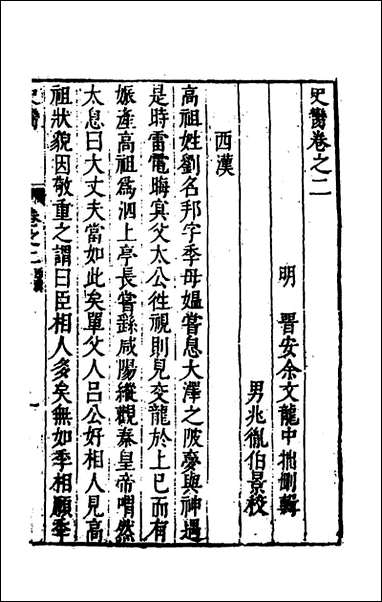 史臠卷之二
明 晋安余文龍中拙刪輯
男兆胤伯景校
西漢
高祖姓劉名邦字季母媼嘗息大澤之陂夢與神遇
是時雷電晦冥父太公徃視則見交龍於上已而有
娠產高祖爲泗上亭長嘗繇咸陽縱觀秦皇帝喟然
太息曰大丈夫當如此矣單父人吕公好相人見高
祖狀貌因敬重之謂曰臣相人多矣無如季相願季
史臠
卷之二
一